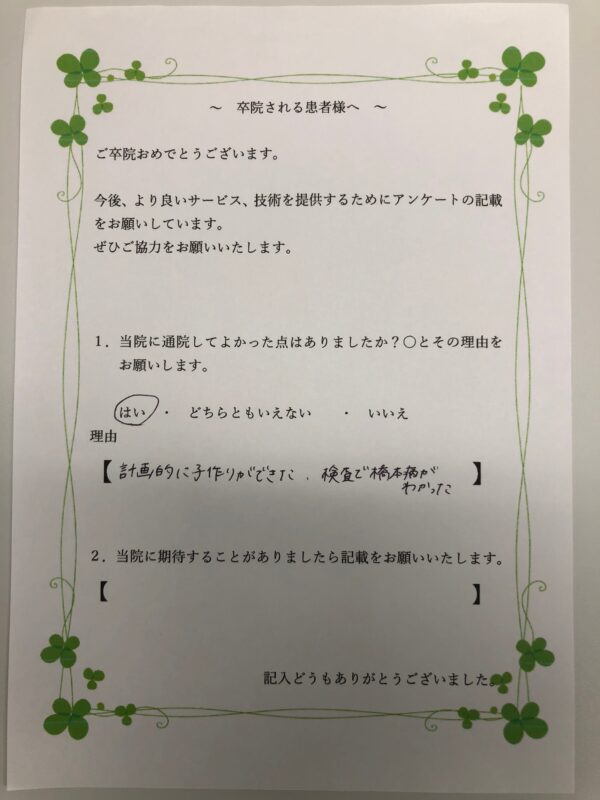 ～ 卒院される患者様へ ～
ご卒院おめでとうございます。
今後、より良いサービス、技術を提供するためにアンケートの記載
をお願いしています。
ぜひご協力をお願いいたします。
１．当院に通院してよかった点はありましたか？〇とその理由を
お願いします。
はい ・ どちらともいえない ・ いいえ
理由
【計画的に子作りができた、検査で橋本病が
わかった】
２．当院に期待することがありましたら記載をお願いいたします。
【 】
記入どうもありがとうございました。